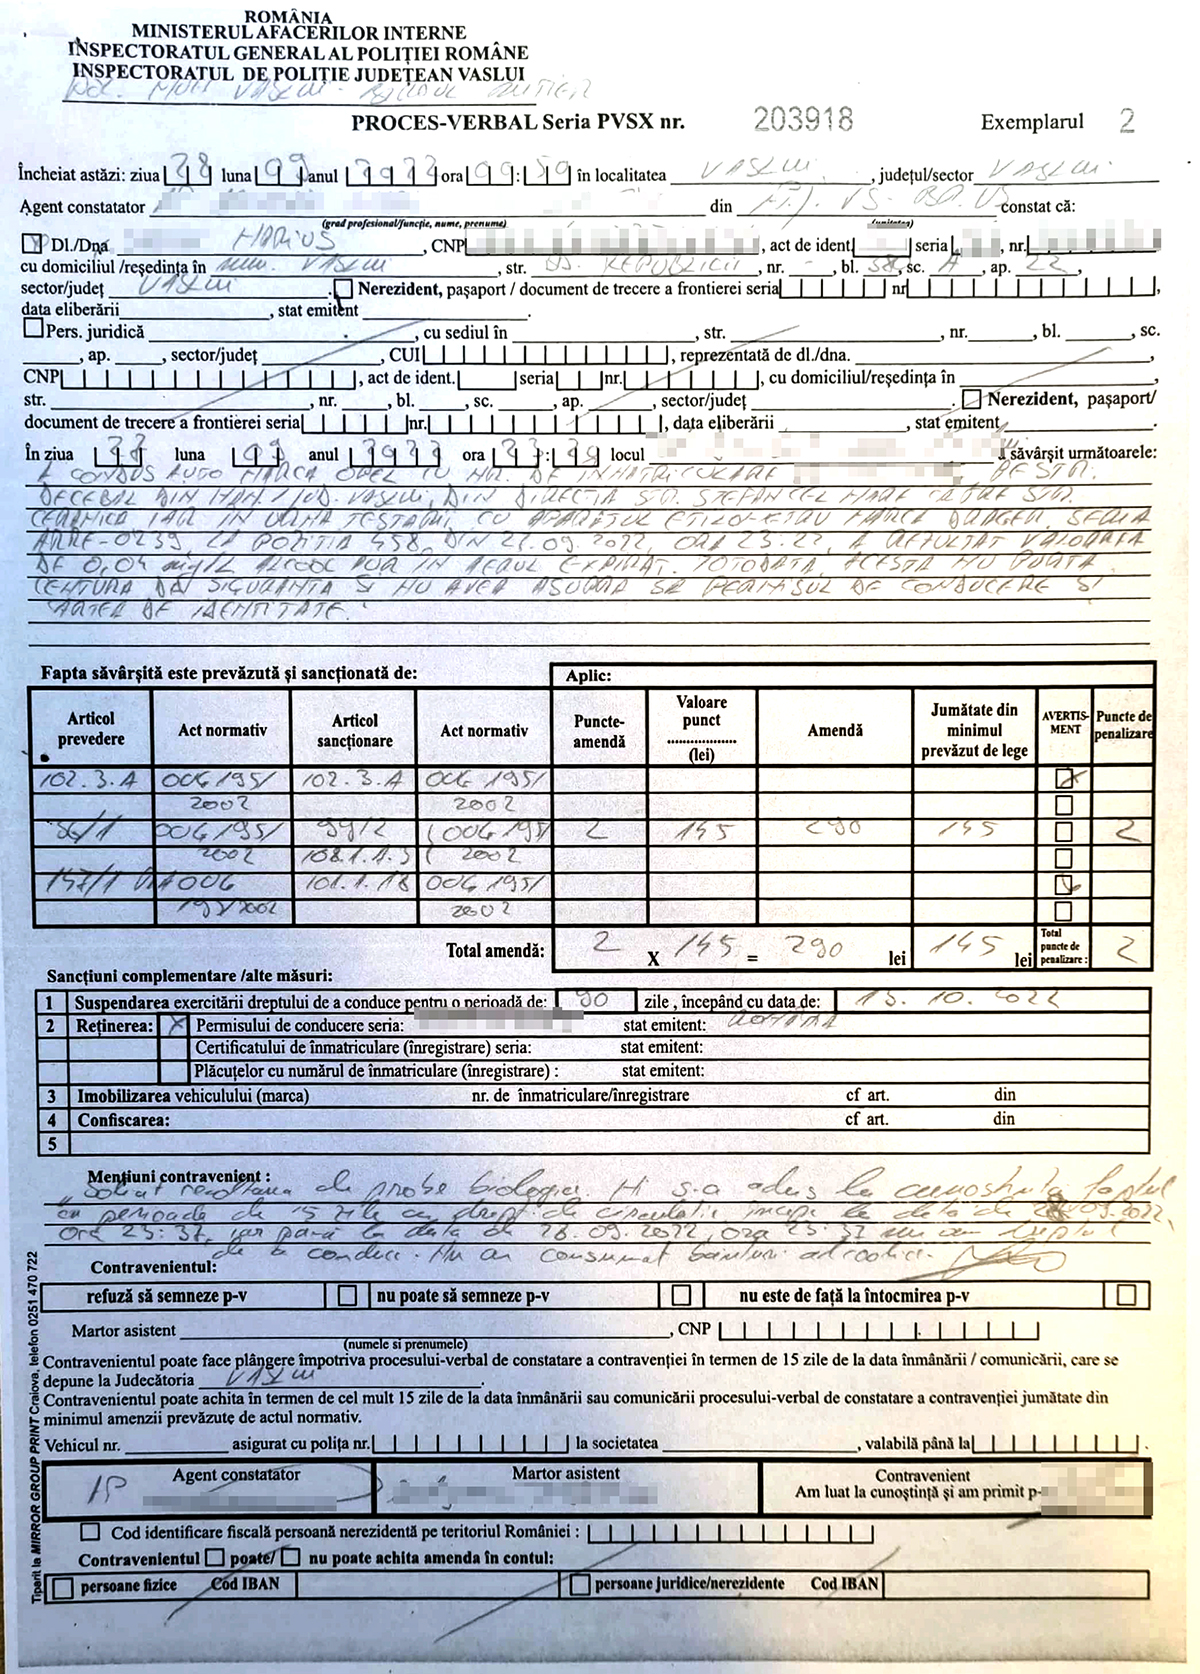 ROMÂNIA
MINISTERUL AFACERILOR INTERNE
INSPECTORATUL GENERAL AL POLIȚIEI ROMÂNE
INSPECTORATUL DE POLIȚIE JUDEȚEAN VASLUI
POL. MUN. VASLUI - BIROUL RUTIER
PROCES-VERBAL Seria PVSX nr. 203918 Exemplarul 2
Încheiat astăzi: ziua 28 luna 09 anul 2022 ora 00:59 în localitatea VASLUI, județul/sector VASLUI
Agent constatator din IPJ. VS. constat că:
(grad profesional/funcție, nume, prenume) (unitatea)
Dl./Dna MARIUS, CNP, act de ident. seria, nr.
cu domiciliul /reședința în mun. VASLUI, str. REPUBLICII, nr. -, bl., sc. A, ap. 22,
sector/județ VASLUI. Nerezident, pașaport / document de trecere a frontierei seria nr,
data eliberării, stat emitent.
Pers. juridică, cu sediul în, str., nr., bl., sc.
, ap., sector/județ, CUI, reprezentată de dl./dna.,
CNP, act de ident. seria nr., cu domiciliul/reședința în,
str., nr., bl., sc., ap., sector/județ. Nerezident, pașaport/
document de trecere a frontierei seria nr., data eliberării, stat emitent.
În ziua 27 luna 09 anul 2022 ora locul săvârșit următoarele:
A CONDUS AUTO MARCA OPEL CU NR. DE INMATRICULARE PE STR.
DECEBAL DIN MUN./JUD. VASLUI, DIN DIRECTIA STR. STEFAN CEL MARE CATRE STR.
CERAMICA IAR IN URMA TESTARII CU APARATUL ETILOMETRU MARCA DRAGER, SERIA
ARRE-0239, LA POZITIA 458, DIN 27.09.2022, ORA 23:22, A REZULTAT VALOAREA
DE 0,04 mg/L ALCOOL PUR IN AERUL EXPIRAT. TOTODATA, ACESTA NU PURTA
CENTURA DE SIGURANTA SI NU AVEA ASUPRA SA PERMISUL DE CONDUCERE SI
CARTEA DE IDENTITATE.
Fapta săvârșită este prevăzută și sancționată de: Aplic:
Articol prevedere Act normativ Articol sancționare Act normativ Puncte-amendă Valoare punct (lei) Amendă Jumătate din minimul prevăzut de lege AVERTISMENT Puncte de penalizare
102.3.A OUG 195/ 102.3.A OUG 195/
2002 2002
36/1 OUG 195/ 99/2 OUG 195/ 2 145 290 145 2
2002 108.1. 2002
147/1 OUG 101.1.18 OUG 195/
195/2002 2002
Total amendă: 2 X 145 = 290 lei 145 lei Total puncte de penalizare: 2
Sancțiuni complementare /alte măsuri:
1 Suspendarea exercitării dreptului de a conduce pentru o perioadă de: 90 zile, începând cu data de: 13.10.2022
2 Reținerea: X Permisului de conducere seria: stat emitent: ROMANIA
Certificatului de înmatriculare (înregistrare) seria: stat emitent:
Plăcuțelor cu numărul de înmatriculare (înregistrare) : stat emitent:
3 Imobilizarea vehiculului (marca) nr. de înmatriculare/înregistrare cf art. din
4 Confiscarea: cf art. din
5
Mențiuni contravenient :
"Solicit recoltarea de probe biologice. Mi s-a adus la cunostinta faptul
ca perioada de 15 zile cu drept de circulatie incepe la data de 09.2022,
ora 23:37, iar pana la data de 28.09.2022, ora 23:37 nu am dreptul
de a conduce. Nu am consumat bauturi alcoolice.
Contravenientul:
refuză să semneze p-v nu poate să semneze p-v nu este de față la întocmirea p-v
Martor asistent, CNP
(numele si prenumele)
Contravenientul poate face plângere împotriva procesului-verbal de constatare a contravenției în termen de 15 zile de la data înmânării / comunicării, care se
depune la Judecătoria VASLUI.
Contravenientul poate achita în termen de cel mult 15 zile de la data înmânării sau comunicării procesului-verbal de constatare a contravenției jumătate din
minimul amenzii prevăzute de actul normativ.
Vehicul nr. asigurat cu polița nr. la societatea, valabilă până la.
Agent constatator Martor asistent Contravenient
Am luat la cunoștință și am primit p-
Cod identificare fiscală persoană nerezidentă pe teritoriul României :
Contravenientul poate/ nu poate achita amenda în contul:
persoane fizice Cod IBAN persoane juridice/nerezidente Cod IBAN
Tiparit la MIRROR GROUP PRINT Craiova, telefon 0251 470 722